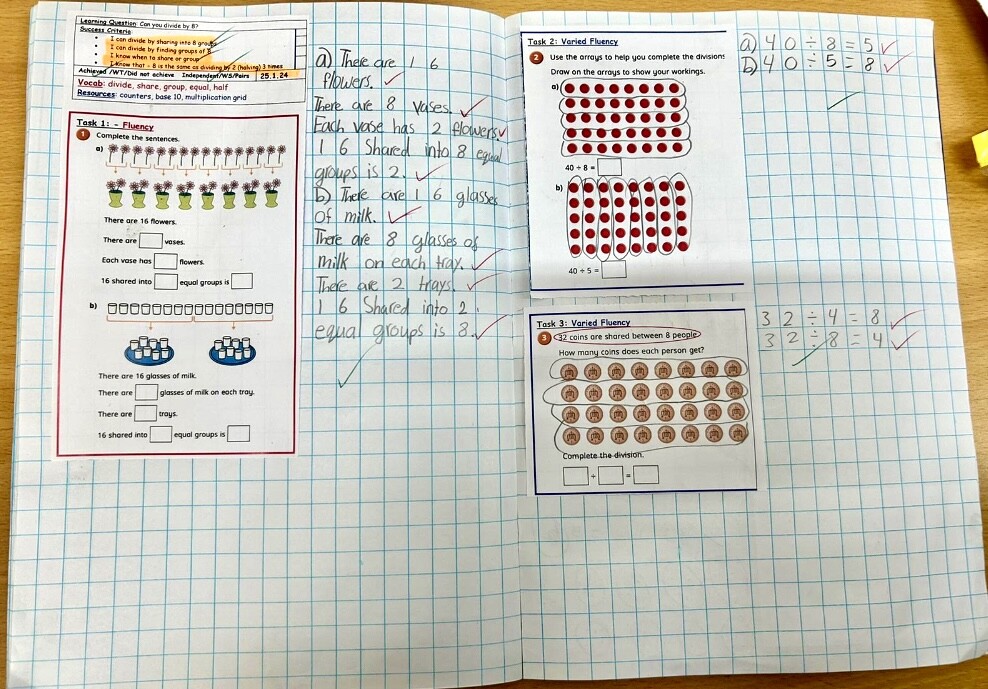 Learning Question: Can you divide by 8?
Success Criteria:
I can divide by sharing into 8 groups
I can divide by finding groups of 8
I know when to share or group
I know that ÷ 8 is the same as dividing by 2 (halving) 3 times
Achieved /WT/Did not achieve Independent/WS/Pairs 25.1.24
Vocab: divide, share, group, equal, half
Resources: counters, base 10, multiplication grid
Task 1: - Fluency
1 Complete the sentences.
a)
There are 16 flowers.
There are vases.
Each vase has flowers.
16 shared into equal groups is
b)
There are 16 glasses of milk.
There are glasses of milk on each tray.
There are trays.
16 shared into equal groups is
a) There are 16
flowers.
There are 8 vases.
Each vase has 2 flowers
16 Shared into 8 equal
groups is 2.
b) There are 16 glasses
of milk.
There are 8 glasses of
milk on each tray.
There are 2 trays.
16 Shared into 2
equal groups is 8.
Task 2: Varied Fluency
2 Use the arrays to help you complete the divisions
Draw on the arrays to show your workings.
a)
40 ÷ 8 =
b)
40 ÷ 5 =
a) 40 ÷ 8 = 5
b) 40 ÷ 5 = 8
Task 3: Varied Fluency
3 32 coins are shared between 8 people
How many coins does each person get?
Complete the division.
÷ =
32 ÷ 4 = 8
32 ÷ 8 = 4